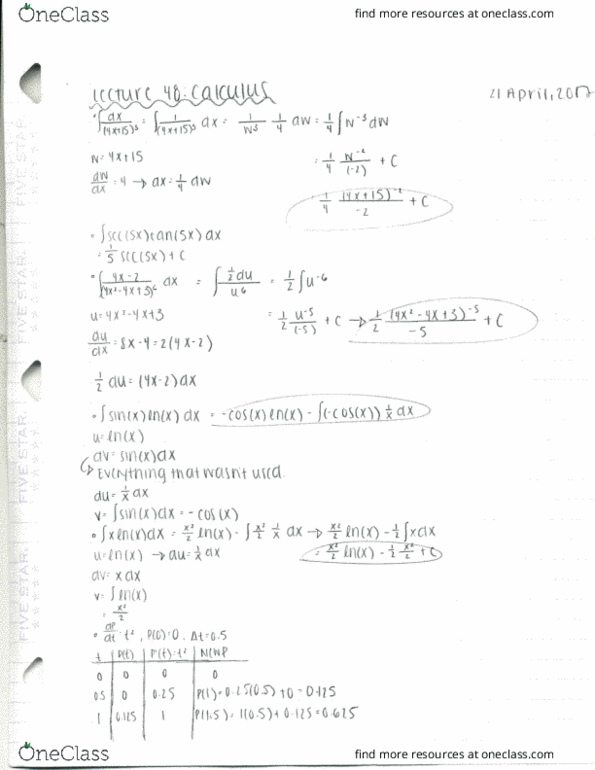 OneClass
find more resources at oneclass.com
Lecture 40: Calculus
21 April, 2017
• ∫ dx/(4x+15)³ = ∫ 1/(4x+15)³ dx = 1/W³ 1/4 dW = 1/4 ∫ W⁻³ dW
W = 4x+15
= 1/4 W⁻²/(-2) + C
dW/dx = 4 → dx = 1/4 dW
1/4 (4x+15)⁻²/-2 + C
• ∫ sec(5x)tan(5x) dx
= 1/5 sec(5x) + C
• ∫ 4x-2/(4x²-4x+3)⁶ dx = ∫ 1/2 du/u⁶ = 1/2 ∫ u⁻⁶
u = 4x²-4x+3
= 1/2 u⁻⁵/(-5) + C → 1/2 (4x²-4x+3)⁻⁵/-5 + C
du/dx = 8x-4 = 2(4x-2)
1/2 du = (4x-2)dx
• ∫ sin(x)ln(x) dx = -cos(x)ln(x) - ∫(-cos(x)) 1/x dx
u = ln(x)
dv = sin(x)dx
↳ Everything that wasnt used.
du = 1/x dx
v = ∫ sin(x)dx = -cos(x)
• ∫ xln(x)dx = x²/2 ln(x) - ∫ x²/2 1/x dx → x²/2 ln(x) - 1/2 ∫ x dx
u = ln(x) → du = 1/x dx
= x²/2 ln(x) - 1/2 x²/2 + C
dv = x dx
v = ∫ ln(x)
= x²/2
• dP/dt = t², P(0)=0. Δt=0.5
t P(t) P'(t)=t² NEWP
0 0 0 0
0.5 0 0.25 P(1)=0.25(0.5)+0=0.125
1 0.125 1 P(1.5)=1(0.5)+0.125=0.625
OneClass
find more resources at oneclass.com